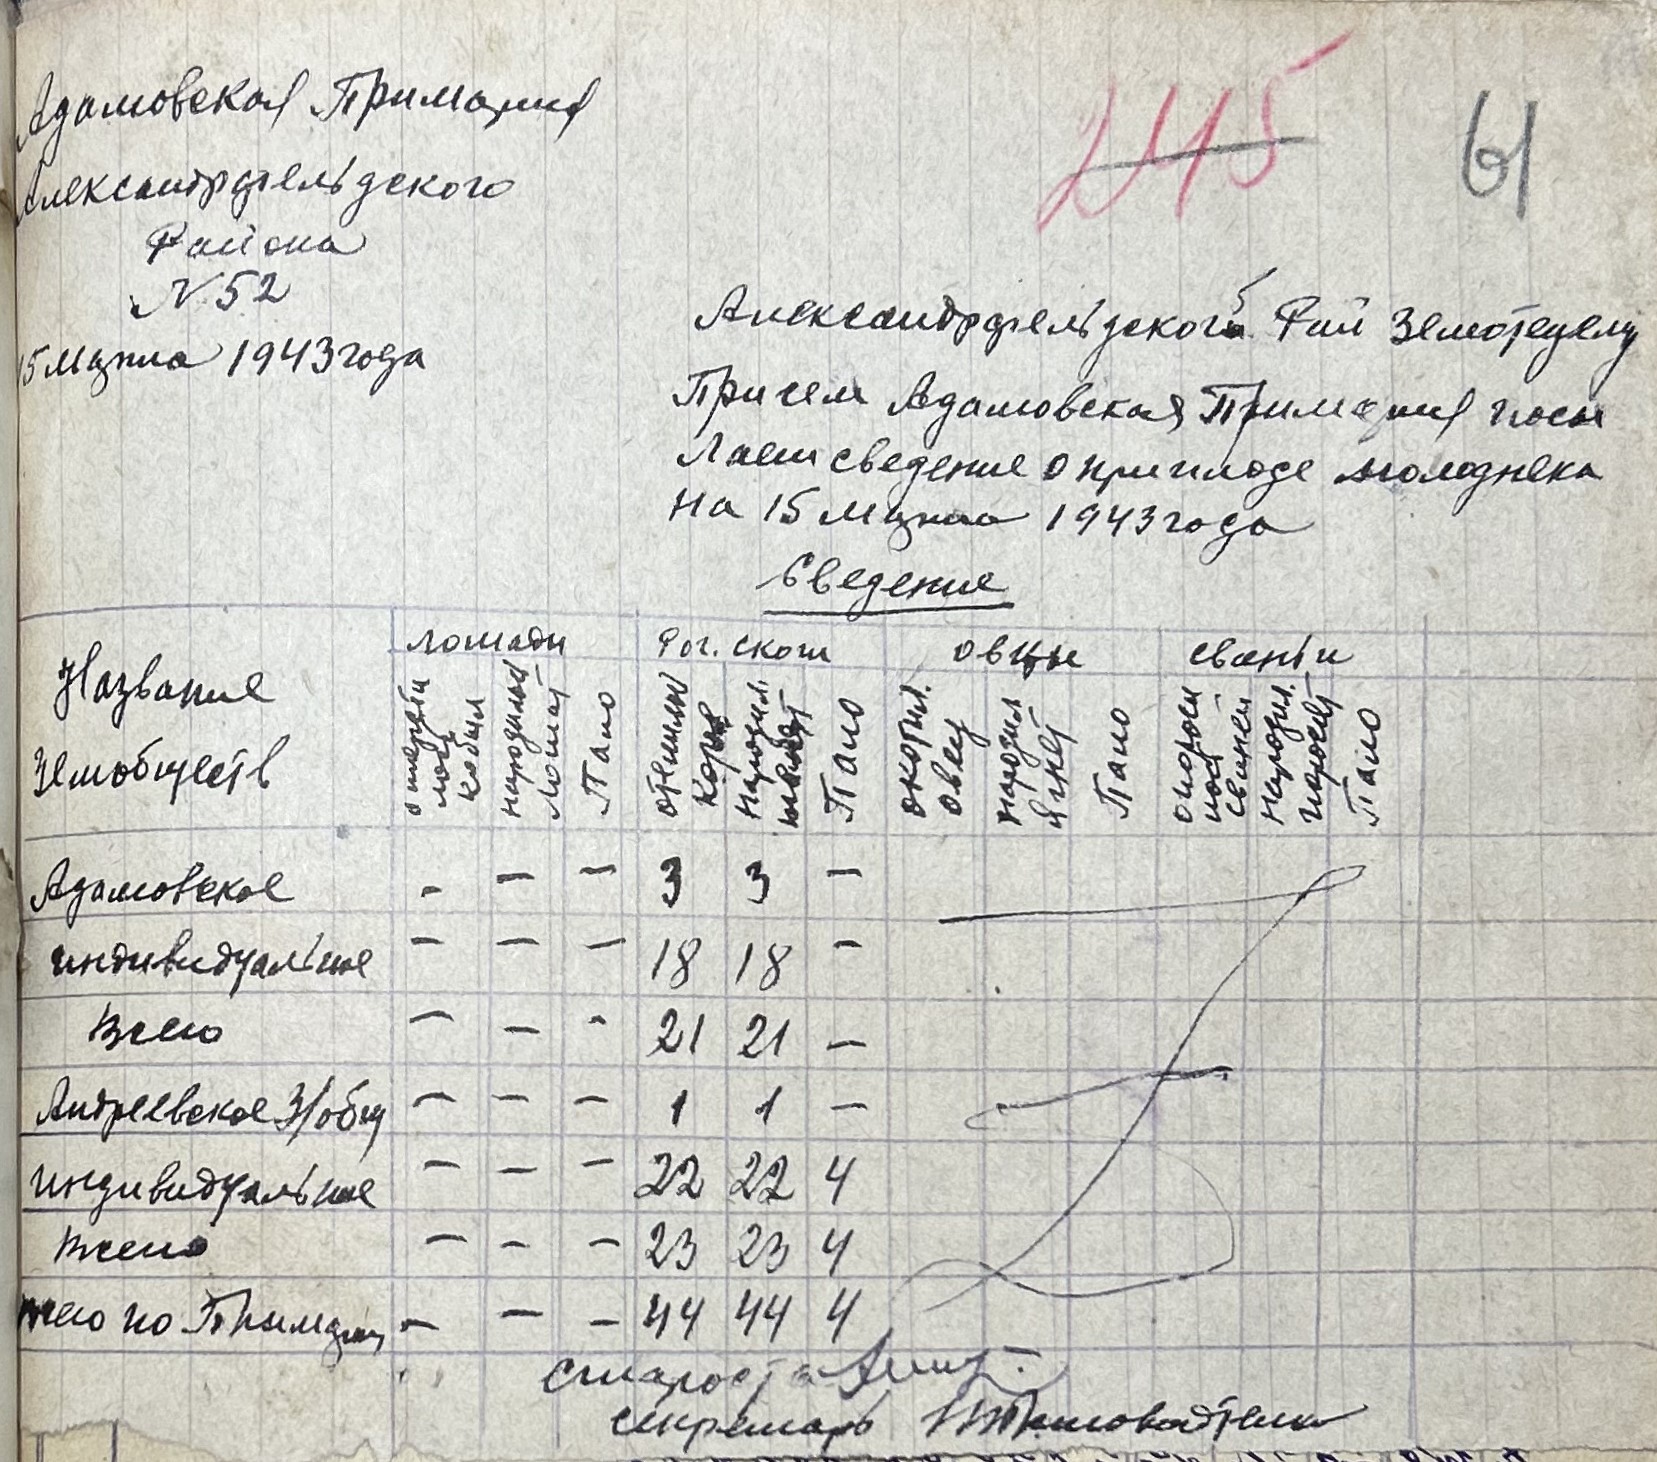 Адамовская Примария
Александрфельдского
Района
N 52
15 Марта 1943 года
245
61
Александрфельдского Рай Земотделу
При чем Адамовская Примария посы
лает сведение о приплоде молодняка
на 15 Марта 1943 года
Сведение
Название Земобществ
лошади Рог. скот овцы свиньи
ожереби лось кобыл народилось лошат Пало отелилось коров народил. телят Пало окотил. овец народил ягнят Пало опороси лось свиней народил. поросят Пало
Адамовское - - - 3 3 -
индивидуальное - - - 18 18 -
Всего - - - 21 21 -
Андреевское З/общ - - - 1 1 -
индивидуальное - - - 22 22 4
Всего - - - 23 23 4
всего по Примарии - - - 44 44 4
Староста
Секретарь